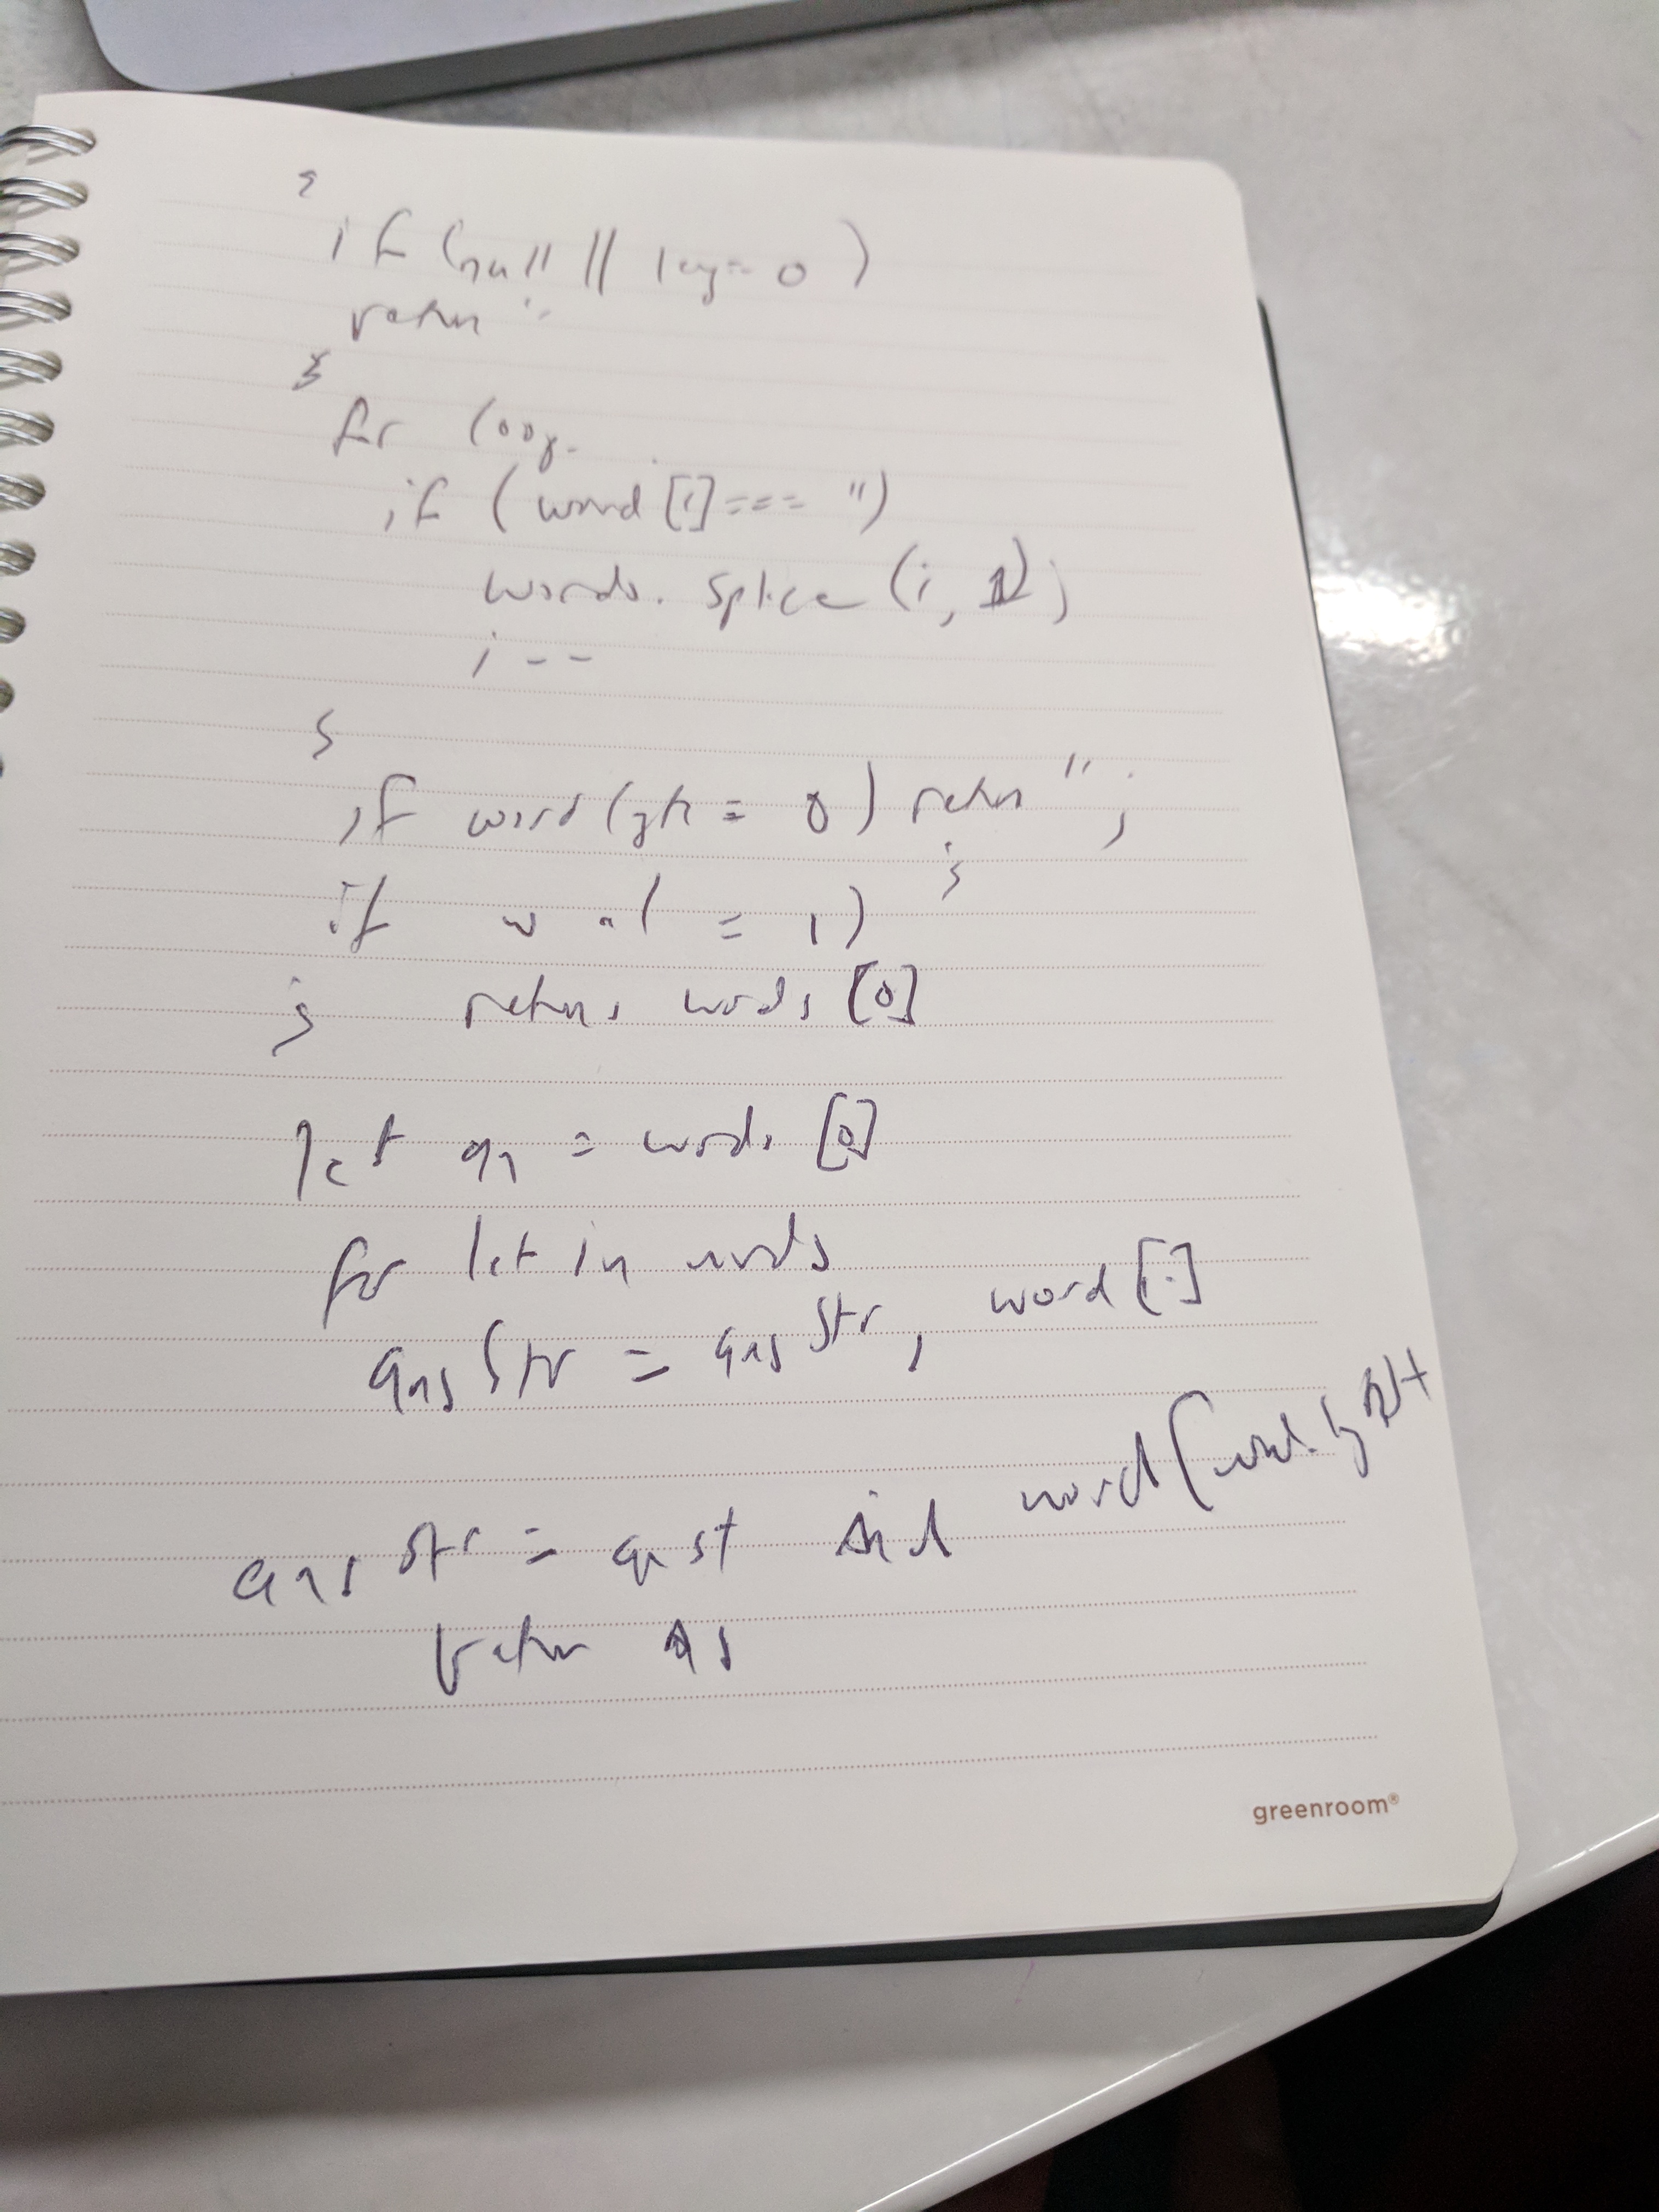 if (null || leg = 0)
return ''
}
for loop
if (word[i] === '')
words.splice(i, 1);
i--
}
if word lgth = 0) return '';
}
if w = 1)
} return words[0]
let an = words[0]
for let in words
ansStr = ansStr, word[i]
ansStr = anst word[
return as
greenroom®